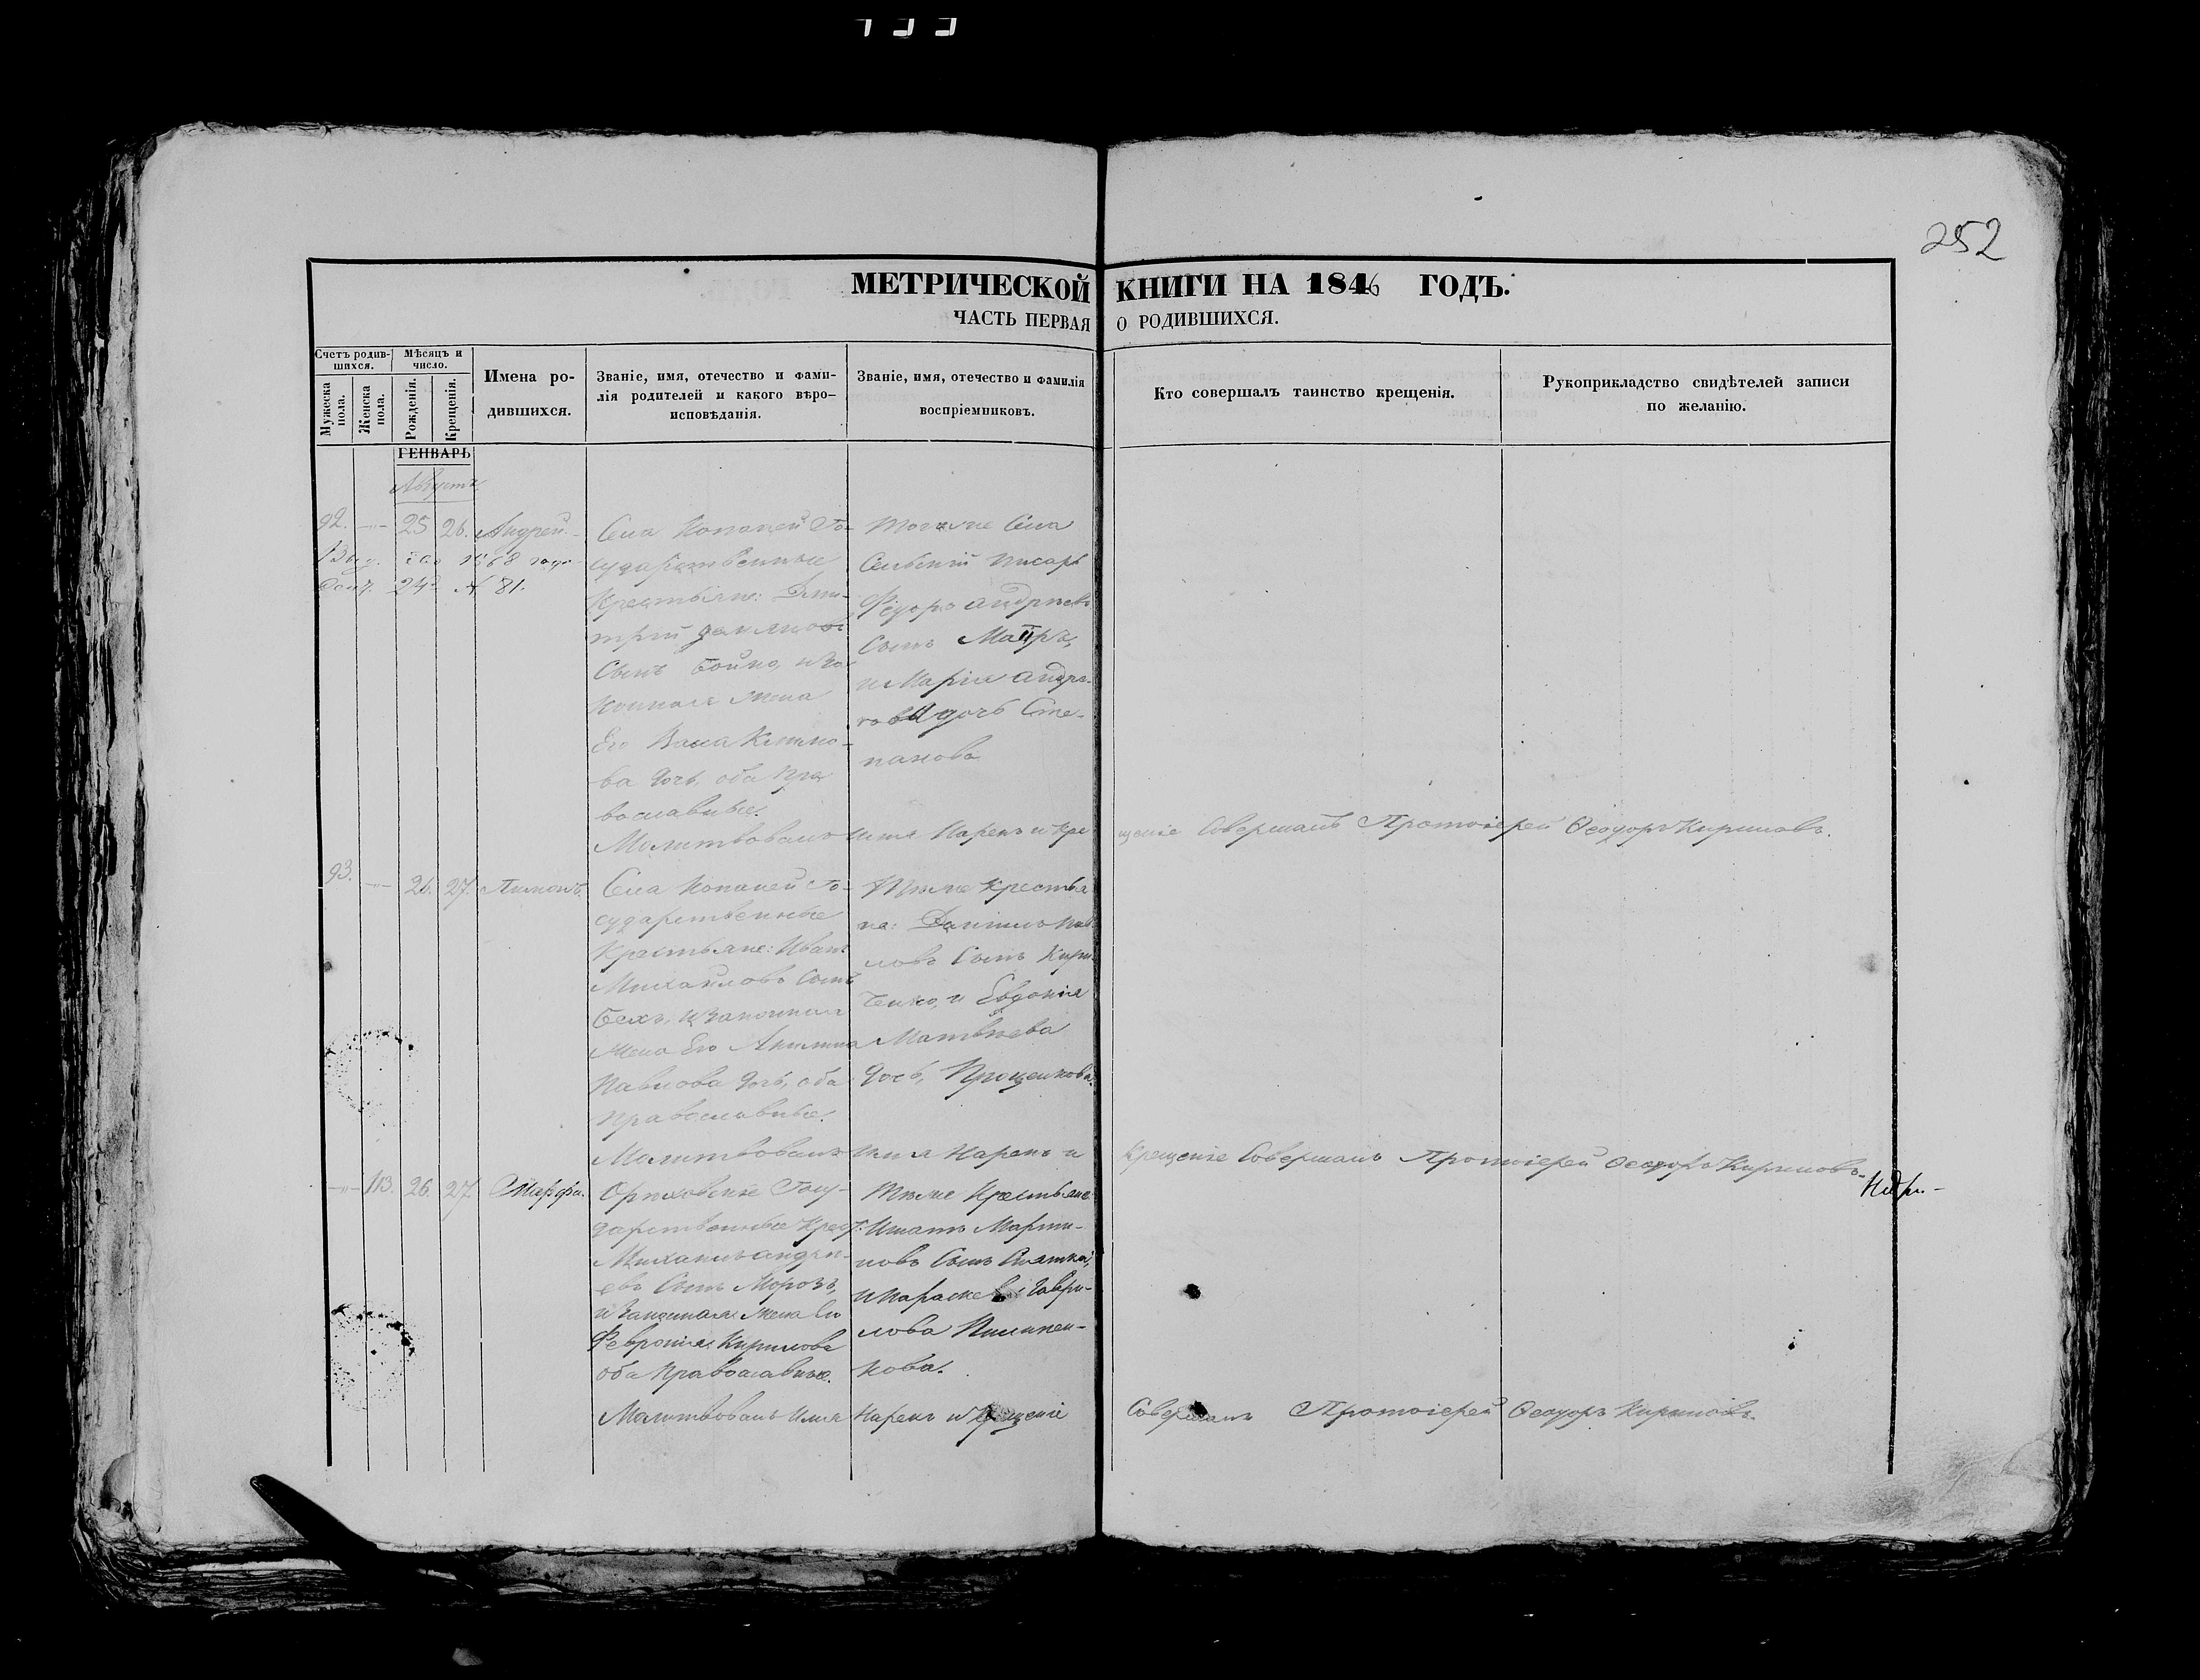 252
МЕТРИЧЕСКОЙ КНИГИ НА 1846 ГОДЪ.
ЧАСТЬ ПЕРВАЯ О РОДИВШИХСЯ.
Счетъ родив-
шихся.
Мужеска
пола.
Женска
пола.
Мѣсяцъ и
число.
Рожденія.
Крещенія.
Имена ро-
дившихся.
Званіе, имя, отечество и фами-
лія родителей и какого вѣро-
исповѣданія.
Званіе, имя, отечество и фамилія
воспріемниковъ.
Кто совершалъ таинство крещенія.
Рукоприкладство свидѣтелей записи
по желанію.
ГЕНВАРЬ
Августъ
92. -"- 25 26. Андрей.
1868 года
24 № 81.
Села Копаней Го-
сударственные
Крестьяне: Дми-
трій
Сынъ Бойко, и За-
конная Жена
Его
ва Дочь, оба Пра
вославные.
Тогоже Села
Сельскій писарь
Федоръ Андреевъ
Сынъ
и Марія
дочь Сте-
панова
Молитвовалъ имя Нарекъ и кре щеніе Совершалъ Протоіерей Ѳеодоръ Кириловъ.
93. -"- 26. 27. Пимонъ.
Села Копаней Го-
сударственные
Крестьяне: Иванъ
Михайловъ Сынъ
Бехъ, и Законная
Жена Его Акилина
Павлова Дочь, оба
Православные.
Тѣже Крестья
не: Даніилъ Пав
ловъ Сынъ Кири
ченко, и Евдокія
Матвѣева
Дочь, Проценкова.
Молитвовалъ Имя Нарекъ и Крещеніе Совершалъ Протоіерей Ѳеодоръ Кириловъ.
-"- 113. 26. 27 Марфа.
Орѣховскіе Госу-
дарственные Крест:
Михаилъ Андрѣ-
евъ Сынъ Морозъ,
и Законная Жена Его
Февронія Кирилова
оба Православные.
Тѣже Крестьяне
Игнатъ Марти-
новъ Сынъ
и Параскева Гаври-
лова Пилипен-
кова.
Молитвовалъ Имя Нарекъ и Крещеніе Совершалъ Протоіерей Ѳеодоръ Кириловъ.